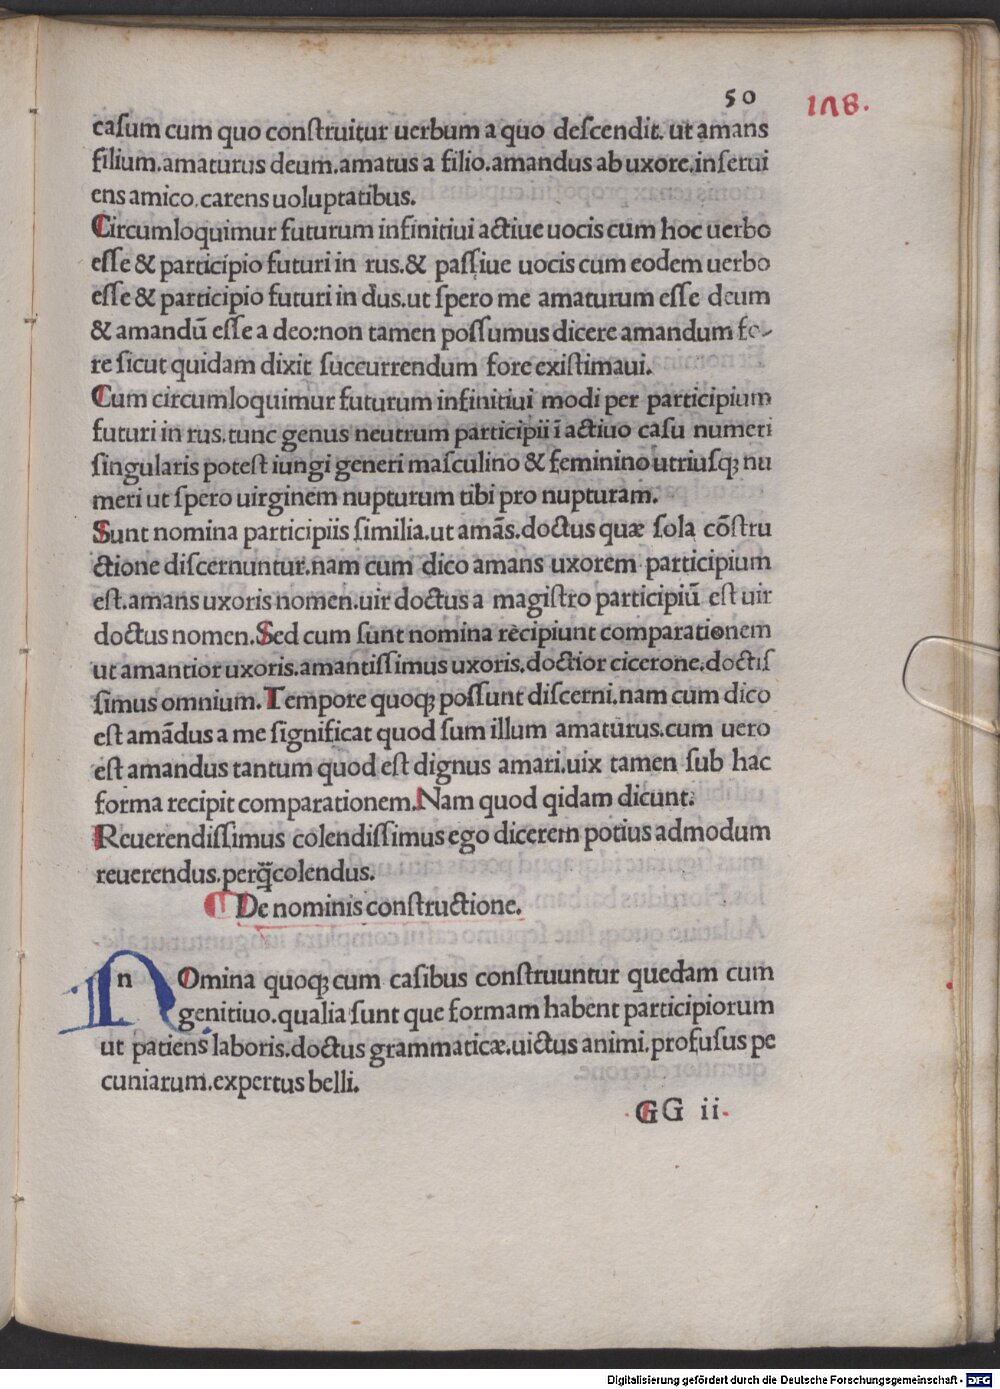 50
118.
casum cum quo construitur uerbum a quo descendit. ut amans
filium.amaturus deum.amatus a filio.amandus ab uxore.inserui
ens amico.carens uoluptatibus.
Circumloquimur futurum infinitiui actiue uocis cum hoc uerbo
esse & participio futuri in rus.& passiue uocis cum eodem uerbo
esse & participio futuri in dus.ut spero me amaturum esse deum
& amandū esse a deo:non tamen possumus dicere amandum fo-
re sicut quidam dixit succurrendum fore existimaui.
Cum circumloquimur futurum infinitiui modi per participium
futuri in rus.tunc genus neutrum participii ī actiuo casu numeri
singularis potest iungi generi masculino & feminino utriusqꝫ nu
meri ut spero uirginem nupturum tibi pro nupturam.
Sunt nomina participiis similia.ut amās.doctus quæ sola cōstru
ctione discernuntur.nam cum dico amans uxorem participium
est.amans uxoris nomen.uir doctus a magistro participiū est uir
doctus nomen.Sed cum sunt nomina recipiunt comparationem
ut amantior uxoris.amantissimus uxoris.doctior cicerone.doctis
simus omnium.Tempore quoqꝫ possunt discerni.nam cum dico
est amādus a me significat quod sum illum amaturus.cum uero
est amandus tantum quod est dignus amari.uix tamen sub hac
forma recipit comparationem.Nam quod qidam dicunt.
Reuerendissimus colendissimus ego dicerem potius admodum
reuerendus.perq̄colendus.
De nominis constructione.
n Omina quoqꝫ cum casibus construuntur quedam cum
genitiuo.qualia sunt que formam habent participiorum
ut patiens laboris.doctus grammaticæ.uictus animi.profusus pe
cuniarum.expertus belli.
GG ii
Digitalisierung gefördert durch die Deutsche Forschungsgemeinschaft - DFG